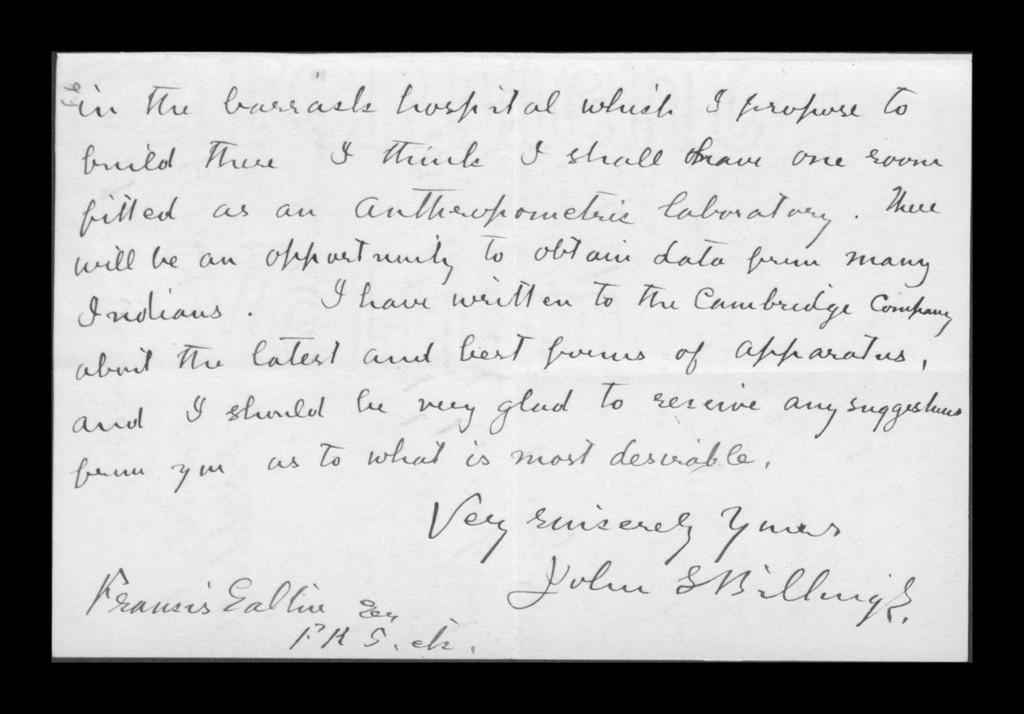 in the barrack hospital which I propose to
build there I think I shall have one room
fitted as an anthropometric laboratory. There
will be an opportunity to obtain data from many
Indians. I have written to the Cambridge Company
about the latest and best forms of apparatus,
and I should be very glad to receive any suggestions
from you as to what is most desirable.
Very sincerely Yours
John S Billings.
Francis Galton Esq
F R S. etc.